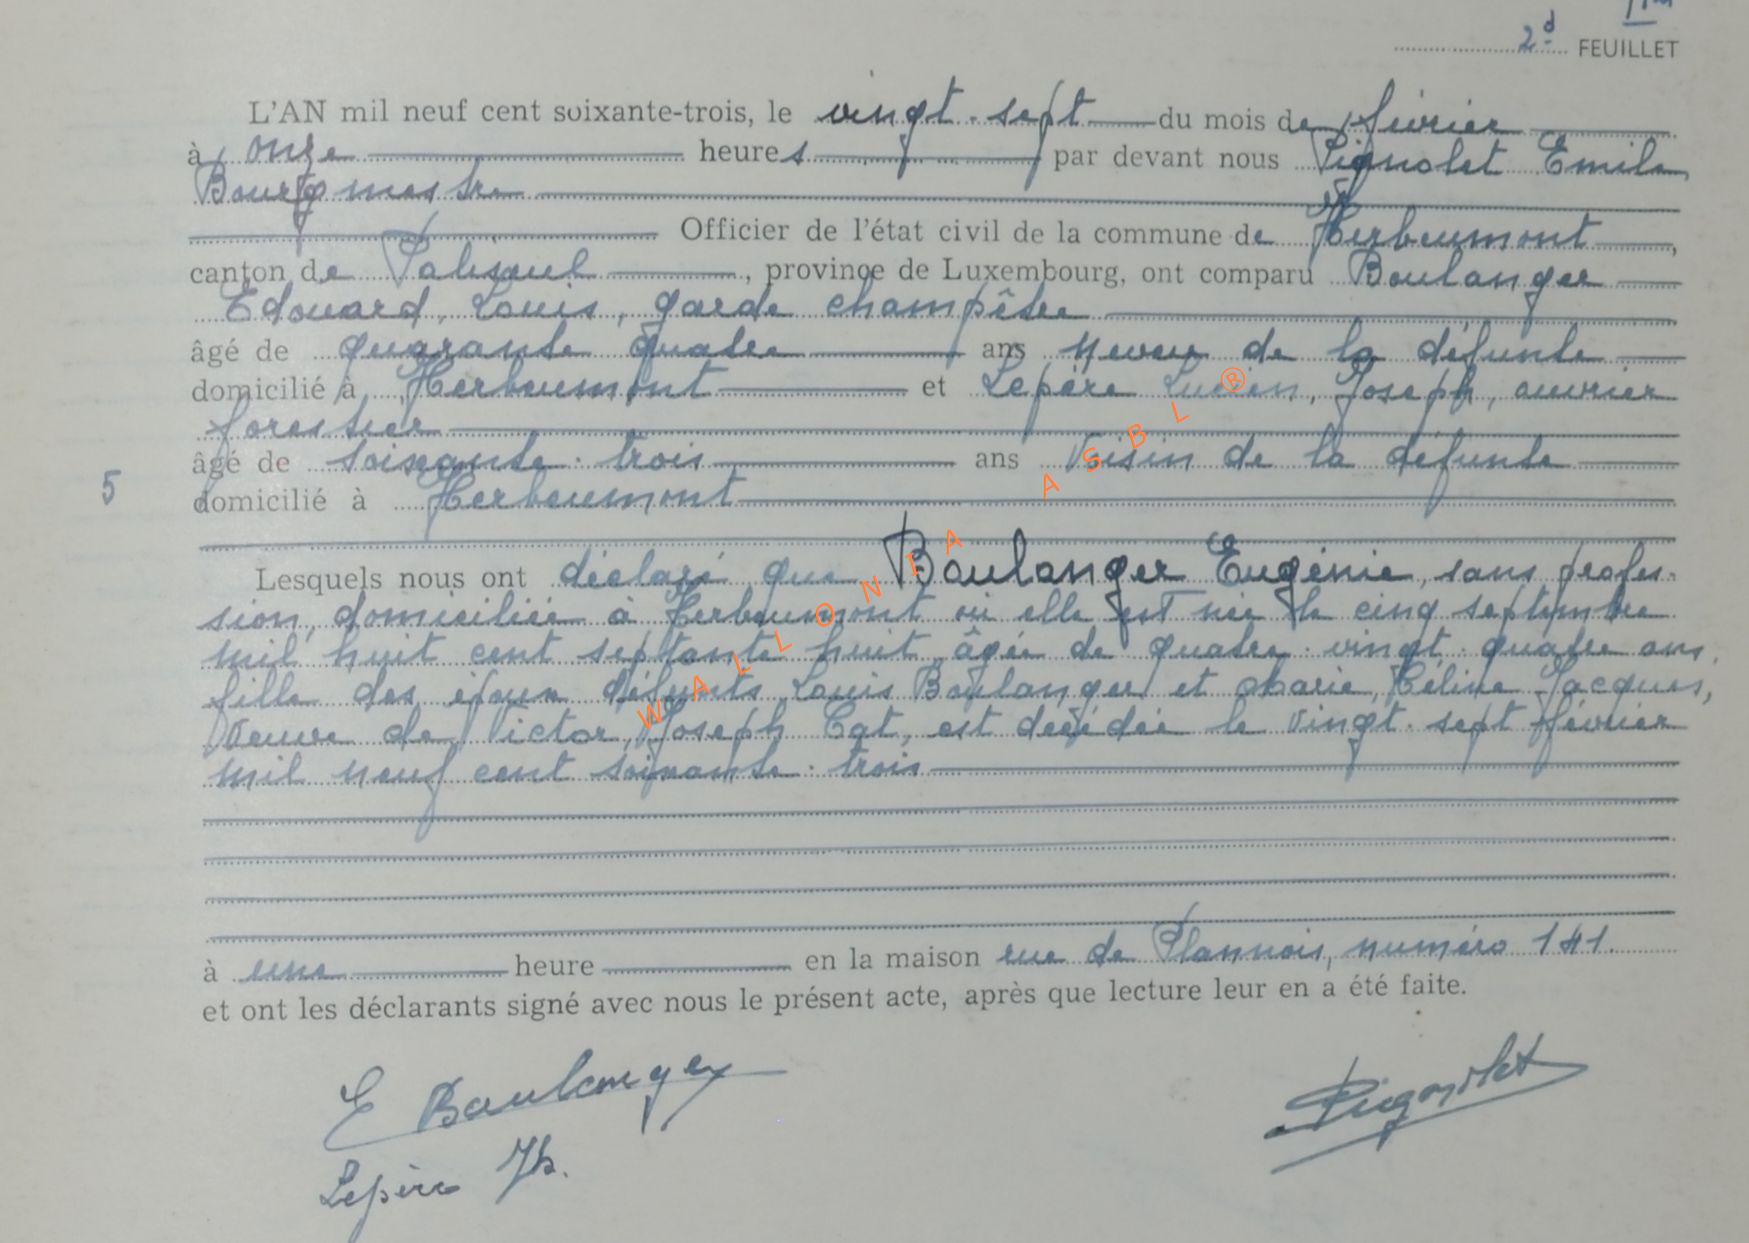 2d FEUILLET
L'AN mil neuf cent soixante-trois, le vingt-sept du mois de février
à onze heures par devant nous Pignolet Emile,
Bourgmestre
Officier de l'état civil de la commune de Herbeumont,
canton de Paliseul, province de Luxembourg, ont comparu Boulanger
Edouard, Louis, garde champêtre
âgé de quarante quatre ans neveu de la défunte
domicilié à Herbeumont et Lepère Lucien, Joseph, ouvrier
forestier
âgé de soixante-trois ans Voisin de la défunte
5
domicilié à Herbeumont
Lesquels nous ont déclaré que Boulanger Eugénie, sans profes-
sion, domiciliée à Herbeumont où elle est née le cinq septembre
mil huit cent septante huit, âgée de quatre-vingt-quatre ans,
fille des époux défunts Louis Boulanger et Marie, Céline Jacques,
Veuve de Victor, Joseph Cat, est décédée le vingt-sept février
mil neuf cent soixante-trois
à une heure en la maison rue de Plannois, numéro 141.
et ont les déclarants signé avec nous le présent acte, après que lecture leur en a été faite.
E Boulanger
Pignolet
Lepère Jh.
WALLONIA ASBL ®